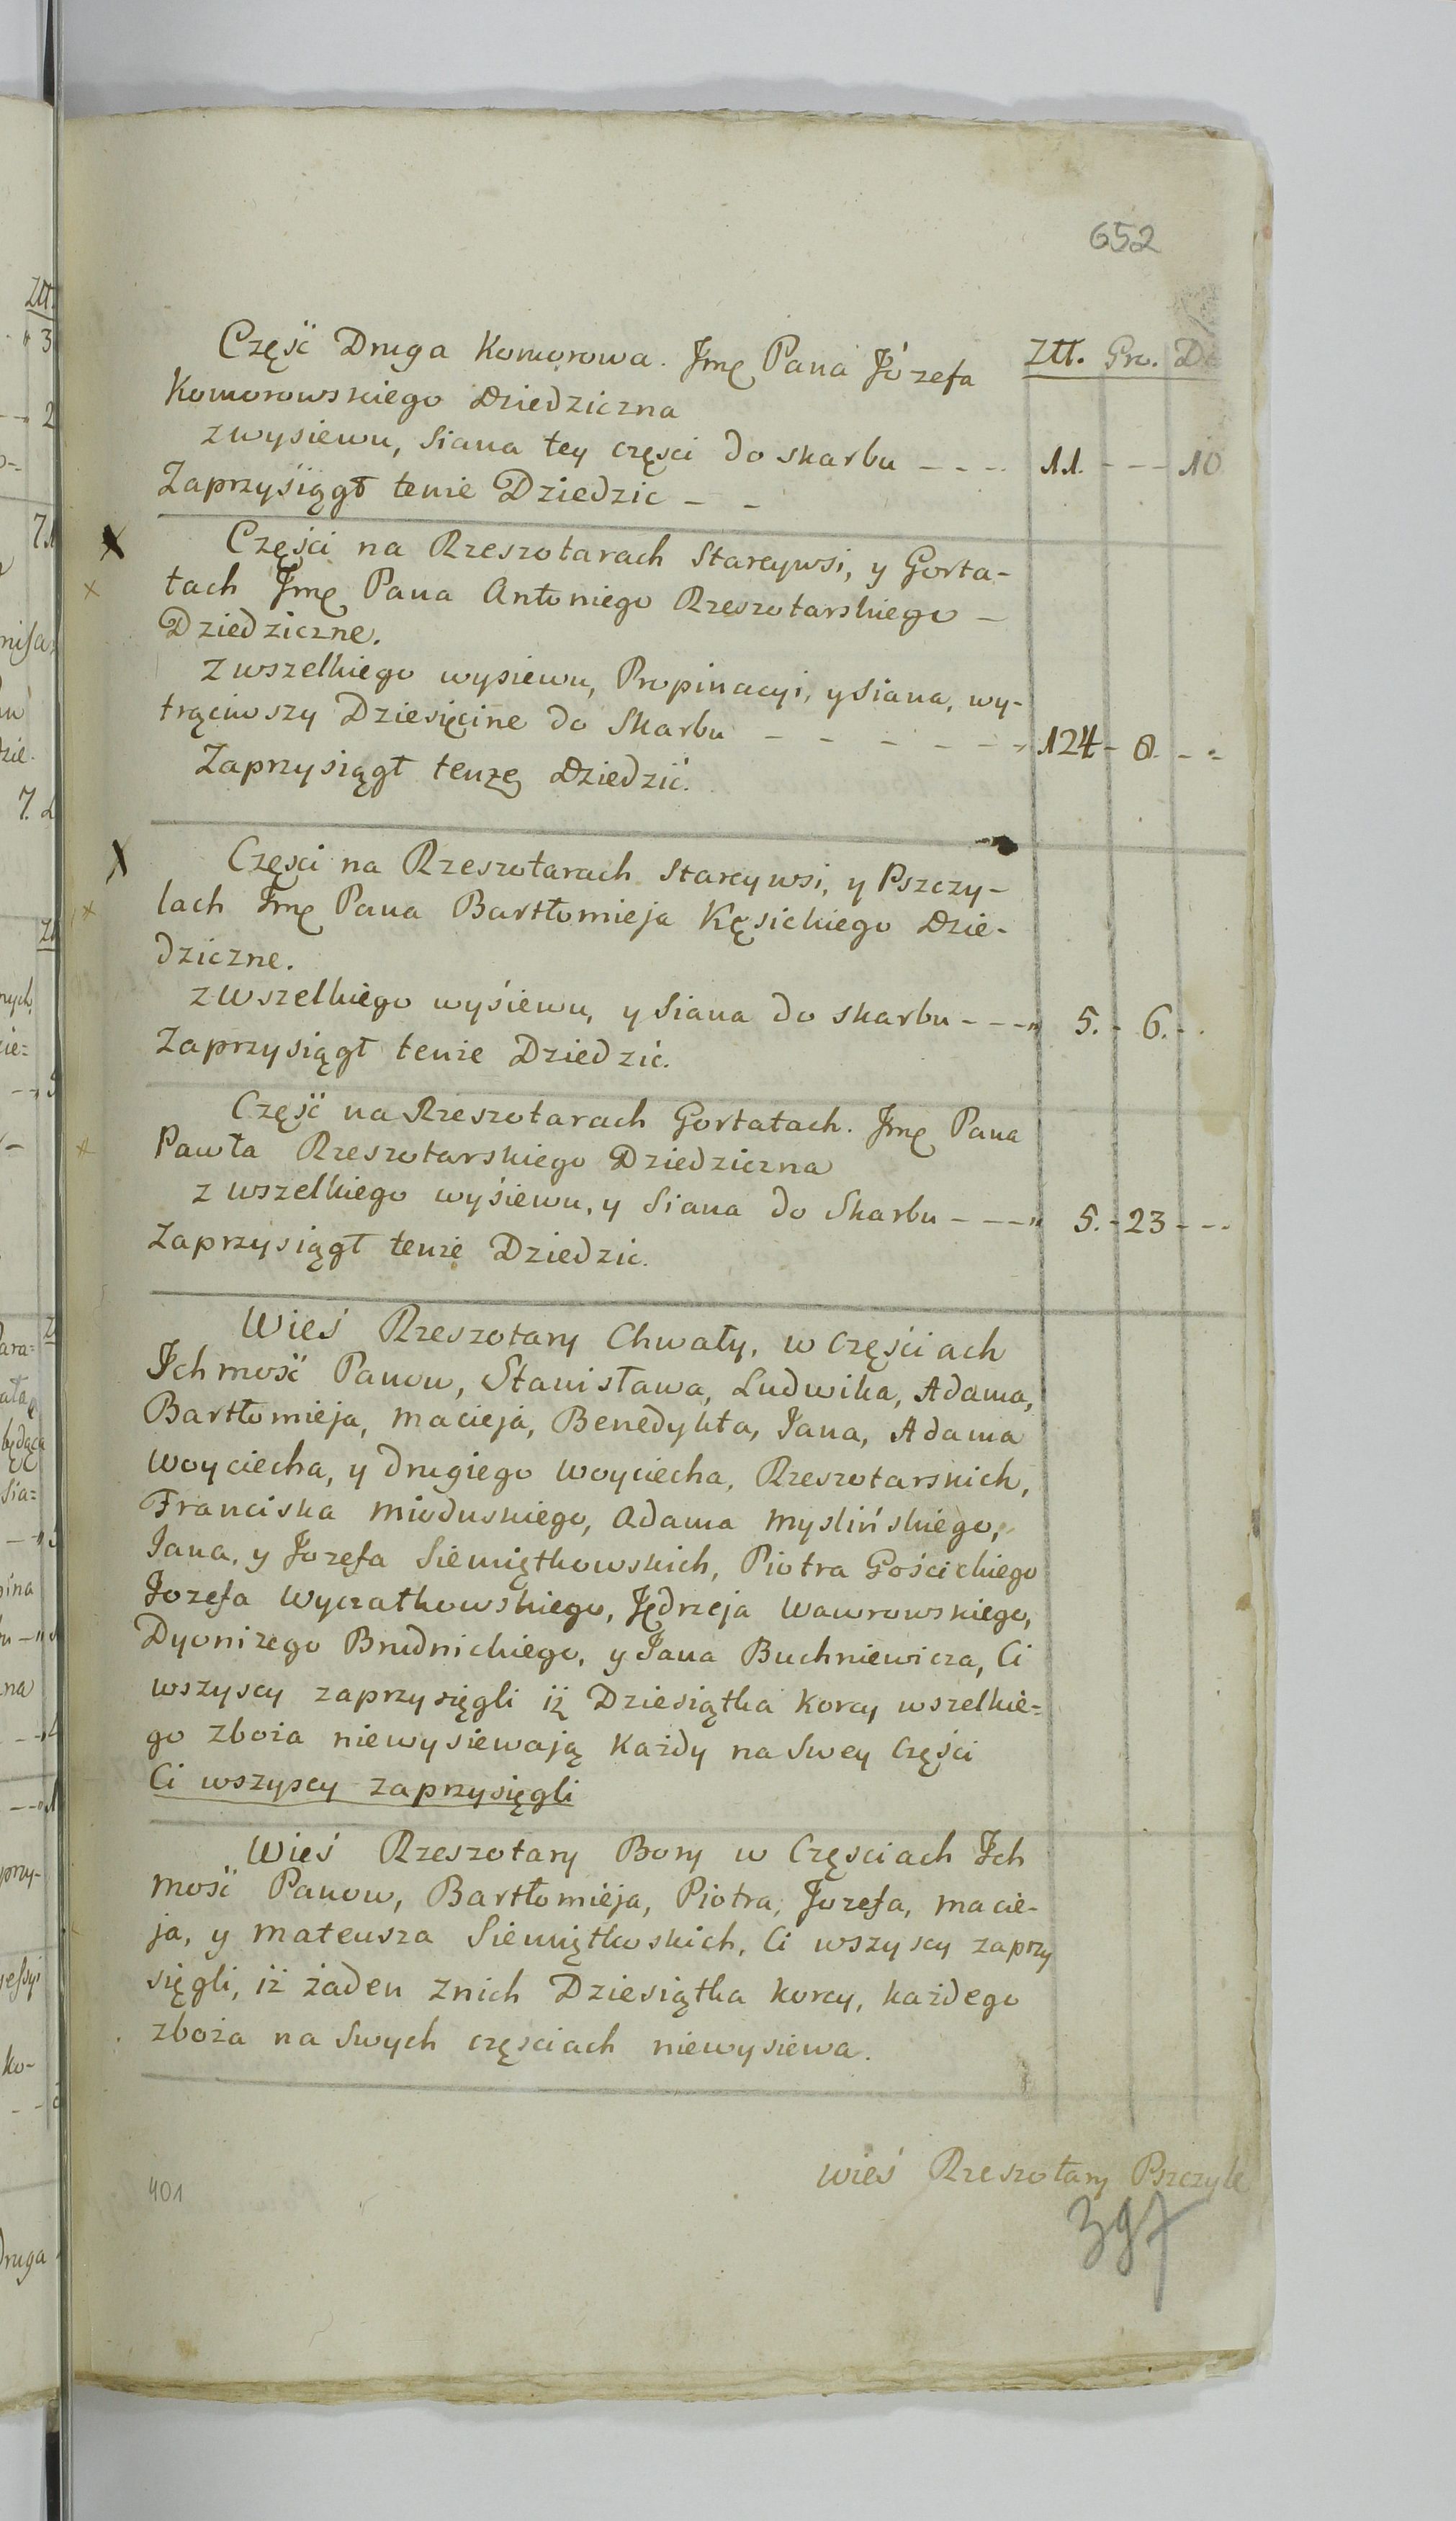 652
Ztt. Gro. De
Część Druga Komorowa. Jmę Pana Józefa
Komorowskiego Dziedziczna
z wysiewu, Siana tey części do skarbu - - - - 11. - - - 10
Zaprzysiągł tenże Dziedzic - -
Części na Rzeszotarach Stareywsi, y Gorta-
tach Jmę Pana Antoniego Rzeszotarskiego -
Dziedziczne.
Z wszelkiego wysiewu, Propinacyi, y Siana, wy-
trąciwszy Dziesięcine do Skarbu - - - - - - 124 - 8. - -
Zaprzysiągł tenżę Dziedzić.
Części na Rzeszotarach Stareywsi, y Pszczy-
lach Jmę Pana Bartłomieja Kęsickiego Dzie-
dziczne.
z wszelkiego wyśiewu, y Siana do skarbu - - - " 5. - 6. - .
Zaprzysiągł tenże Dziedzić.
Część na Rzeszotarach Gortatach. Jmę Pana
Pawła Rzeszotarskiego Dziedziczna
z wszelkiego wyśiewu, y Siana do Skarbu - - - " 5. - 23 - - -
Zaprzysiągł tenże Dziedzic.
Wieś Rzeszotary Chwały, w Częściach
Ichmość Panow, Stanisława, Ludwika, Adama,
Bartłomieja, Macieja, Benedykta, Jana, Adama
Woyciecha, y drugiego Woyciecha, Rzeszotarskich,
Franciska Mioduskiego, Adama Myslińskiego,
Jana, y Jozefa Siemiątkowskich, Piotra Gościckiego
Jozefa Wyczatkowskiego, Jędrzeja Wawrowskiego,
Dyonizego Brudnickiego, y Jana Buchniewicza, Ci
wszyscy zaprzysięgli iż Dziesiątka Korcy wszelkie=
go zboża niewysiewają każdy na Swey Części
Ci wszyscy zaprzysięgli
Wieś Rzeszotary Bory w Częsciach Ich
mość Panow, Bartłomieja, Piotra, Jozefa, Macie-
ja, y Mateusza Siemiątkoskich, Ci wszyscy zaprzy
sięgli, iż żaden Znich Dziesiątka korcy, każdego
zboża na Swych częsciach niewysiewa.
wieś Rzeszotary Pszczyle
401
397